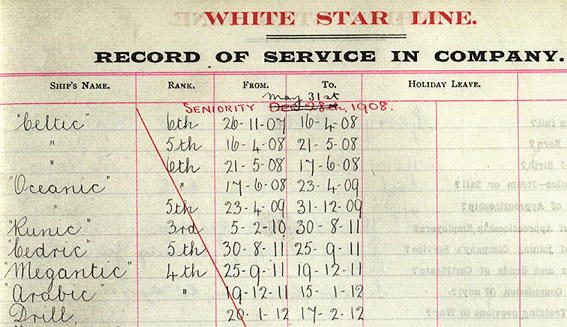 WHITE STAR LINE.
RECORD OF SERVICE IN COMPANY.
SHIP'S NAME. RANK. FROM. TO. HOLIDAY LEAVE.
May 31st
SENIORITY Dec 28th, 1908.
"Celtic" 6th 26-11-07 16-4-08
" 5th 16-4-08 21-5-08
" 6th 21-5-08 17-6-08
"Oceanic" " 17-6-08 23-4-09
" 5th 23-4-09 31-12-09
"Runic" 3rd 5-2-10 30-8-11
"Cedric" 5th 30-8-11 25-9-11
"Megantic" 4th 25-9-11 19-12-11
"Arabic" " 19-12-11 15-1-12
Drill, 20-1-12 17-2-12